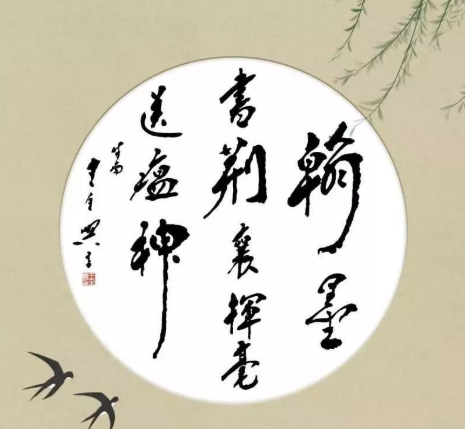 翰墨
書荆襄揮毫
送瘟神